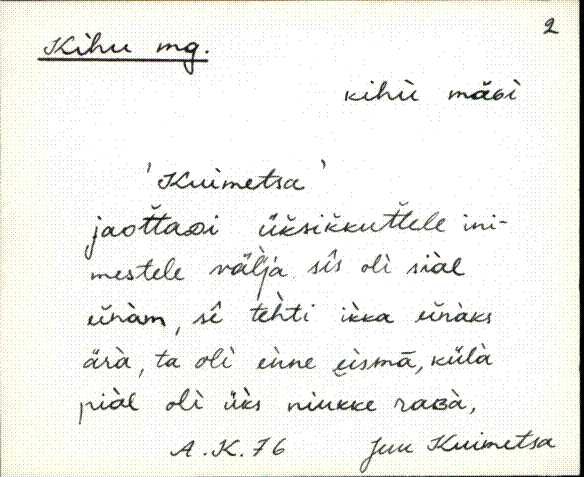 2
Kihu mg.
kihù mäɢì
'Kuimetsa'
jaotťaᴅi üǩsiǩkutťele ini-
mestele väl̀ja sîs olì siàl
eǐnàm, sê tehti ìkka eǐnàks
ärà, ta olì enne eìsmā, külà
piàl olì üks niukke raʙà,
A.K.76 Juu Kuimetsa